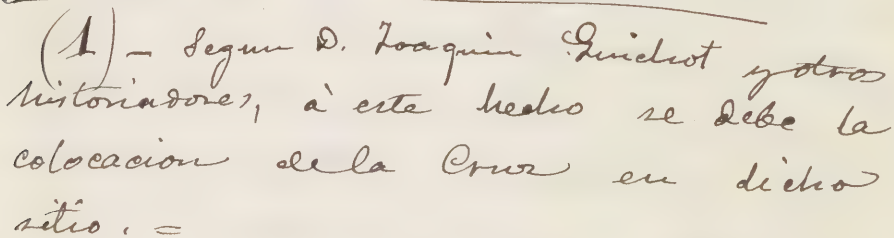 (1) - Segun D. Joaquin Guichot y otros
historiadores, à este hecho se debe la
colocacion de la Cruz en dicho
sitio. =